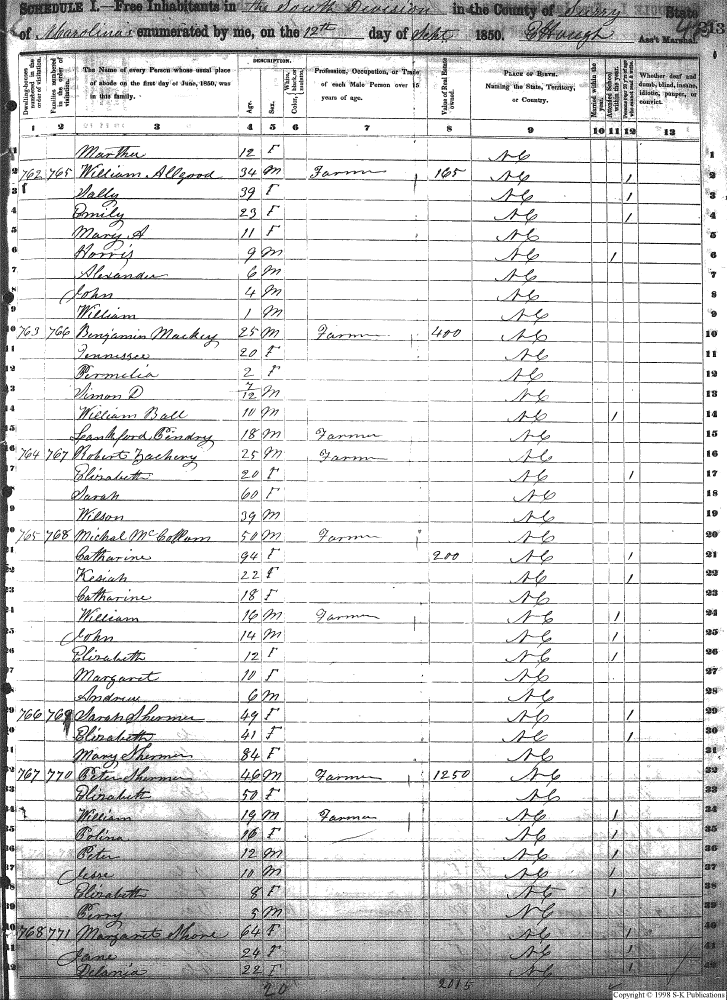 SCHEDULE I.—Free Inhabitants in the South Division in the County of Surry State
of N Carolina enumerated by me, on the 12th day of Sept 1850. Ass't Marshal.
Dwelling-houses numbered in the order of visitation.
Families numbered in the order of visitation.
The Name of every Person whose usual place of abode on the first day of June, 1850, was in this family.
DESCRIPTION.
Age.
Sex.
White, black, or mulatto.
Color,
Profession, Occupation, or Trade of each Male Person over 15 years of age.
Value of Real Estate owned.
PLACE OF BIRTH. Naming the State, Territory, or Country.
Married within the year.
Attended School within the year.
Persons over 20 y'rs of age who cannot read & write.
Whether deaf and dumb, blind, insane, idiotic, pauper, or convict.
1 2 3 4 5 6 7 8 9 10 11 12 13
1 Martha 12 F NC 1
2 762 765 William Allgood 34 M Farmer 165 NC / 2
3 Sally 39 F NC / 3
4 Emily 23 F NC / 4
5 Mary A 11 F NC 5
6 Horris 9 M NC / 6
7 Alexander 6 M NC 7
8 John 4 M NC 8
9 William 1 M NC 9
10 763 766 Benjamin Mackey 25 M Farmer 400 NC 10
11 Tennissee 20 F NC 11
12 Permelia 2 F NC 12
13 Simon D 7/12 M NC 13
14 William Ball 10 M NC / 14
15 Lankford Pindry 18 M Farmer NC 15
16 764 767 Robert Zachery 25 M Farmer NC 16
17 Elizabeth 20 F NC / 17
18 Sarah 60 F NC 18
19 Wilson 39 M NC 19
20 765 768 Michal McCollum 50 M Farmer NC 20
21 Catharine 94 F 200 NC / 21
22 Kesiah 22 F NC / 22
23 Catharine 18 F NC 23
24 William 16 M Farmer NC / 24
25 John 14 M NC / 25
26 Elizabeth 12 F NC / 26
27 Margaret 10 F NC 27
28 Andrew 6 M NC 28
29 766 769 Sarah Shermer 49 F NC / 29
30 Elizabeth 41 F NC / 30
31 Mary Shermer 84 F NC 31
32 767 770 Peter Shermer 46 M Farmer 1250 NC 32
33 Elizabeth 50 F NC 33
34 William 19 M Farmer NC / 34
35 Polina 16 F NC / 35
36 Peter 12 M NC / 36
37 Jesse 10 M NC / 37
38 Elizabeth 8 F NC / 38
39 Perry 5 M NC 39
40 768 771 Margaret Shore 64 F NC / 40
41 Jane 24 F NC / 41
42 Delania 22 F NC / 42
20 2015
Copyright © 1998 S-K Publications